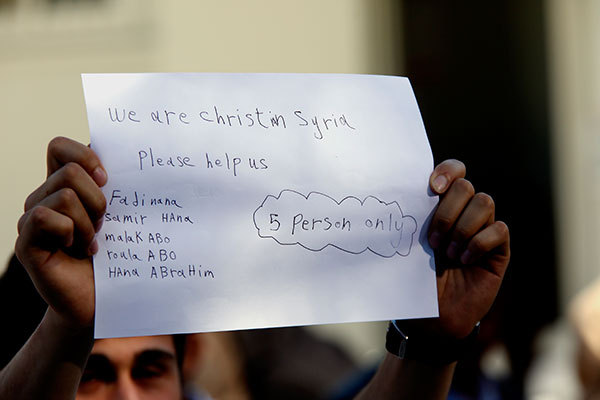 We are christin Syria
Please help us
Fadinana
samir HAna
malak ABO
roula ABO
HAna ABraHim
5 Person only